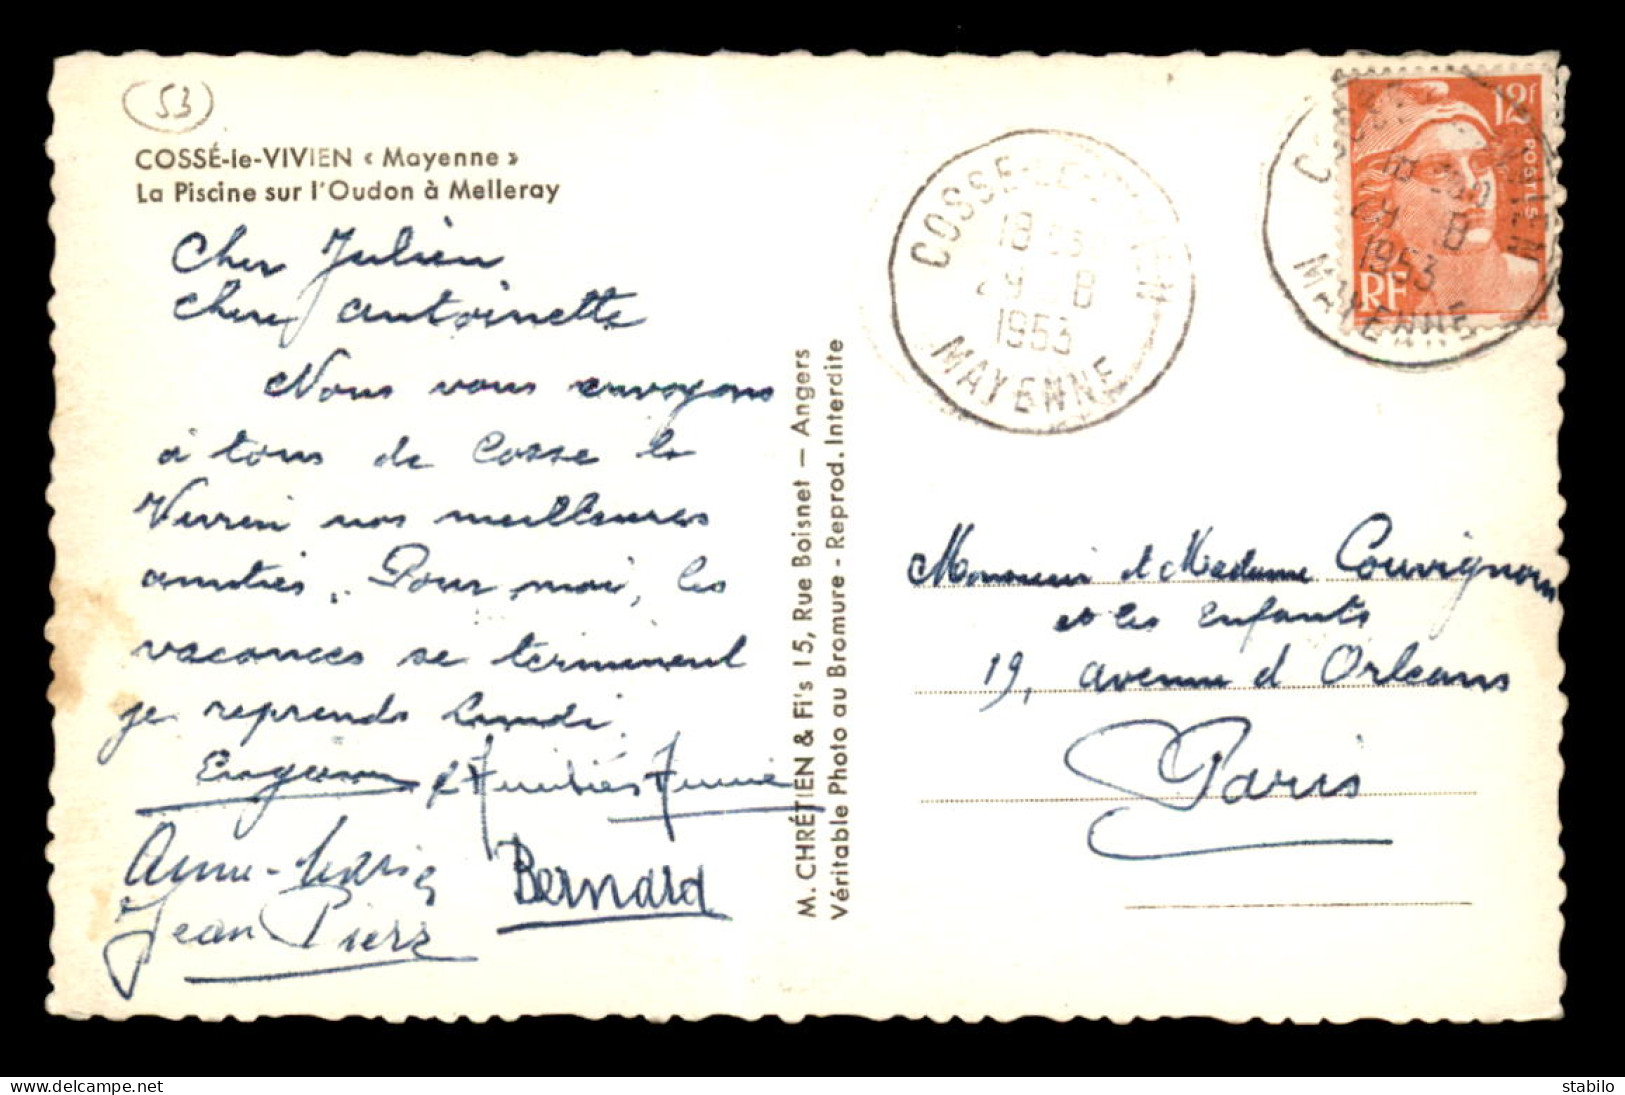 53
COSSÉ-le-VIVIEN « Mayenne »
La Piscine sur l'Oudon à Melleray
Cher Julien
chere antoinette
Nous vous envoyons
à tous de Cosse le
Vivien nos meilleures
amitiés. Pour moi, les
vacances se terminent
je reprends Lundi.
Amitiés
Anne-Marie
Bernard
Jean Pierre
M. CHRÉTIEN & Fi's 15, Rue Boisnet — Angers
Véritable Photo au Bromure - Reprod. Interdite
COSSE-LE-VIVIEN
18
29 - 8
1953
MAYENNE
12F
POSTES
RF
COSSE-LE-VIVIEN
18
29 8
1953
MAYENNE
Monsieur et Madame Couvignou
et les Enfants
19, avenue d Orleans
Paris
delcampe.net
stabilo